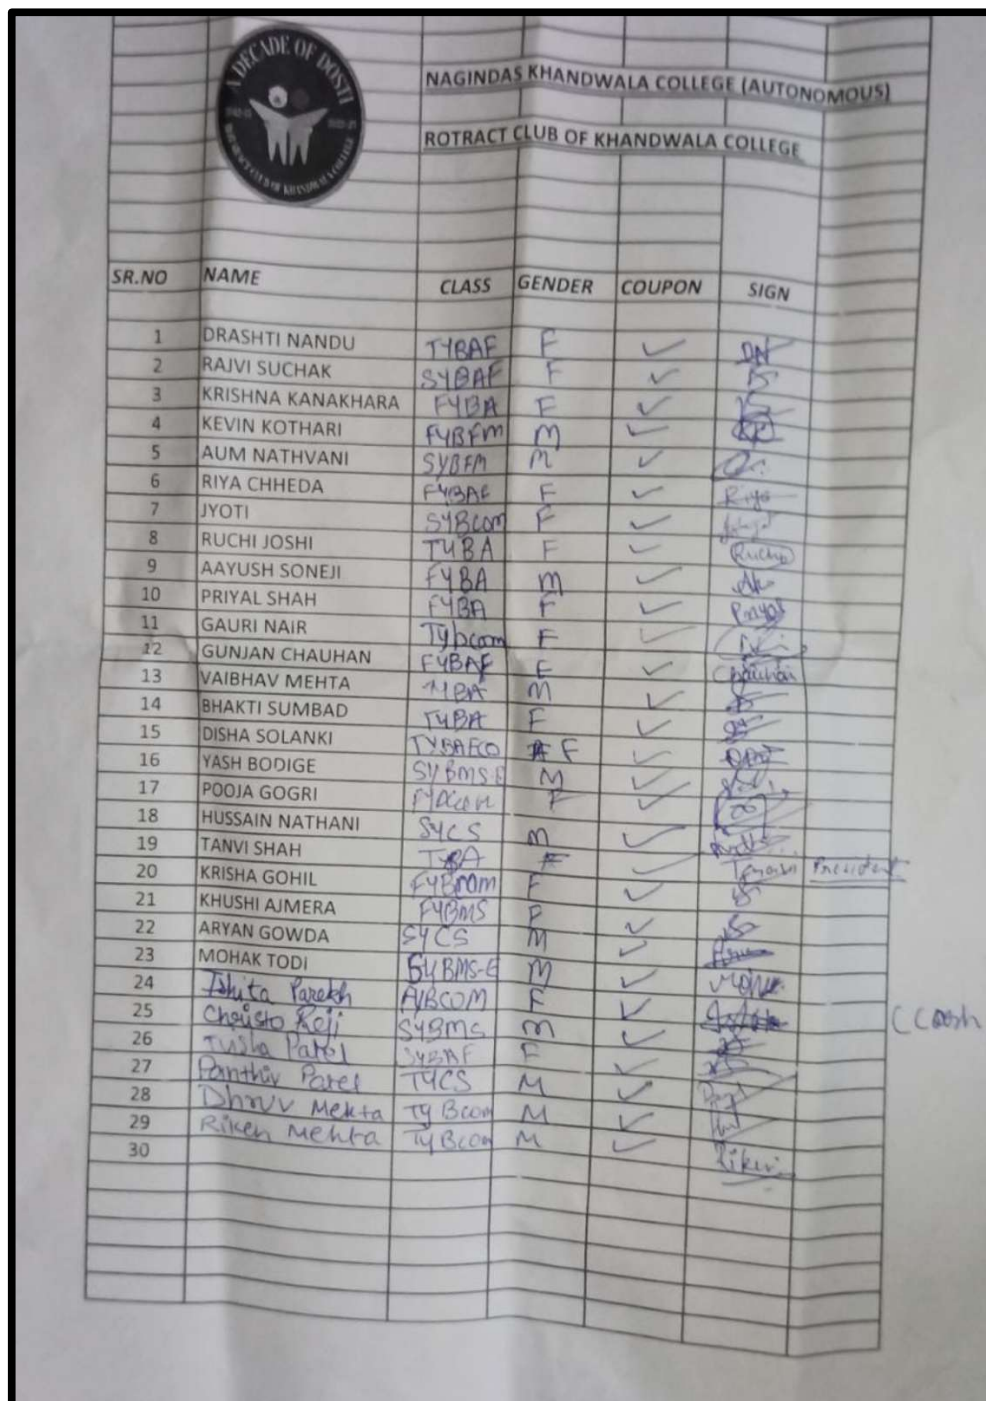 A DECADE OF DOSTI
ROTARACT CLUB OF KHANDWALA COLLEGE
NAGINDAS KHANDWALA COLLEGE (AUTONOMOUS)
ROTRACT CLUB OF KHANDWALA COLLEGE
SR.NO NAME CLASS GENDER COUPON SIGN
1 DRASHTI NANDU TYBAF F ✓ DN
2 RAJVI SUCHAK SYBAF F ✓
3 KRISHNA KANAKHARA FYBA F ✓
4 KEVIN KOTHARI FYBFM M ✓
5 AUM NATHVANI SYBFM M ✓
6 RIYA CHHEDA FYBAF F ✓ Riya
7 JYOTI SYBcom F ✓
8 RUCHI JOSHI TYBA F ✓ Ruchi
9 AAYUSH SONEJI FYBA M ✓
10 PRIYAL SHAH FYBA F ✓ Priyal
11 GAURI NAIR Tybcom F ✓
12 GUNJAN CHAUHAN FYBAF F ✓ Chauhan
13 VAIBHAV MEHTA MBA M ✓
14 BHAKTI SUMBAD TYBA F ✓
15 DISHA SOLANKI TYBAFCO F ✓
16 YASH BODIGE SYBMS-E M ✓
17 POOJA GOGRI F ✓
18 HUSSAIN NATHANI SYCS M ✓
19 TANVI SHAH TYBA F ✓ President
20 KRISHA GOHIL FYBCOM F ✓
21 KHUSHI AJMERA FYBMS F ✓
22 ARYAN GOWDA SYCS M ✓
23 MOHAK TODI SYBMS-E M ✓
24 Ishita Parekh FYBCOM F ✓
25 Christo Reji SYBMS M ✓
26 Tusha Patel SYBAF F ✓
27 Panthiv Patel TYCS M ✓
28 Dhruv Mehta Ty Bcom M ✓
29 Riken Mehta Ty Bcom M ✓ Riken
30